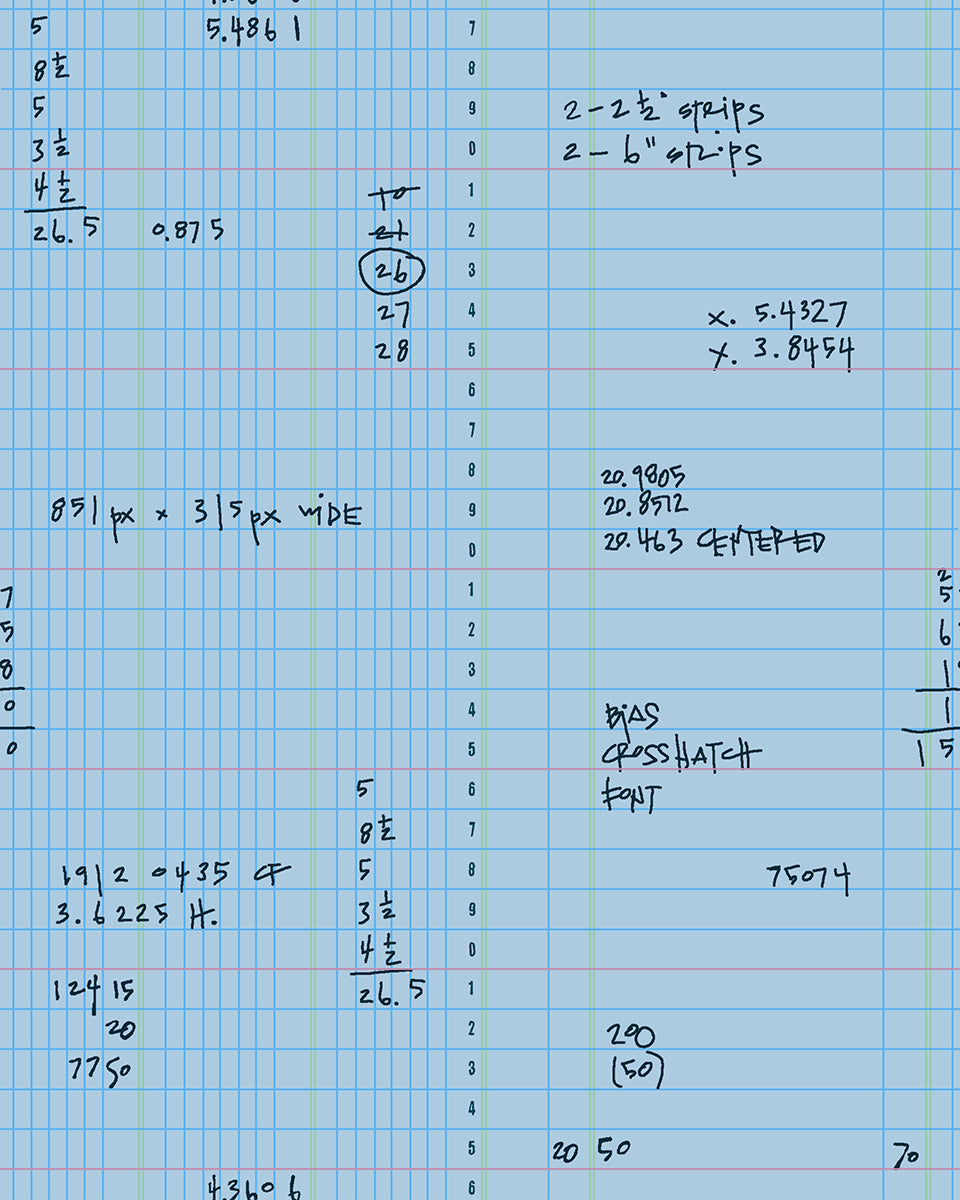 5
8 1/2
5
3 1/2
4 1/2
26.5 0.875
5.4861
10
21
26
27
28
851 px x 315 px WIDE
7
5
8
0
0
5
8 1/2
5
3 1/2
4 1/2
26.5
3.6225 H.
12415
20
7750
4.3606
7
8
9
0
1
2
3
4
5
6
7
8
9
0
1
2
3
4
5
6
7
8
9
0
1
2
3
4
5
6
2 - 2 1/2" STRIPS
2 - 6" STRIPS
x. 5.4327
y. 3.8454
20.9805
20.8512
20.463 CENTERED
2
5
6
1
1
15
BIAS
CROSSHATCH
FONT
75074
200
(50)
20 50
70